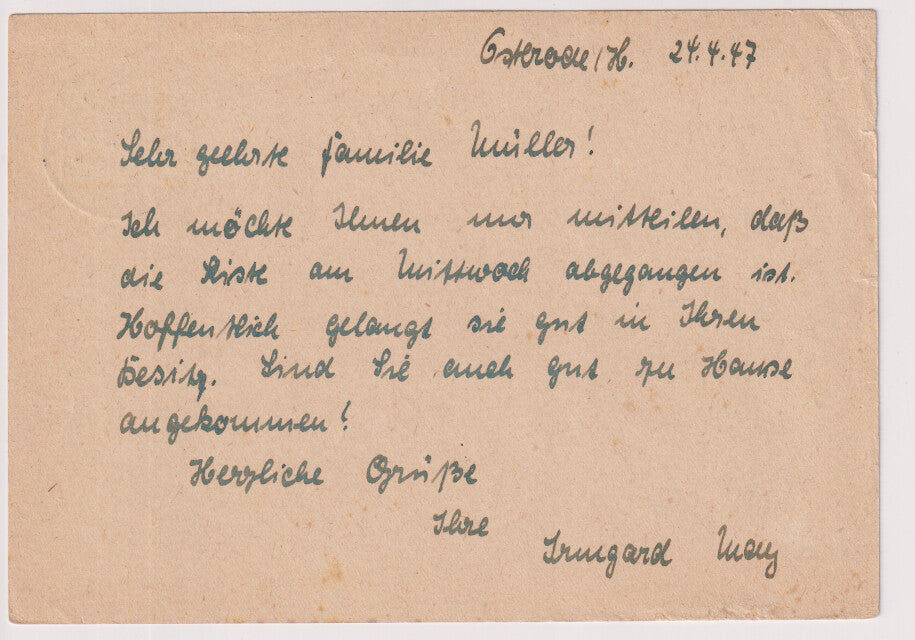 Osterode/H. 24.4.47
Sehr geehrte Familie Müller!
Ich möchte Ihnen nur mitteilen, daß
die Kiste am Mittwoch abgegangen ist.
Hoffentlich gelangt sie gut in Ihren
Besitz. Sind Sie auch gut zu Hause
angekommen!
Herzliche Grüße
Ihre
Irmgard May